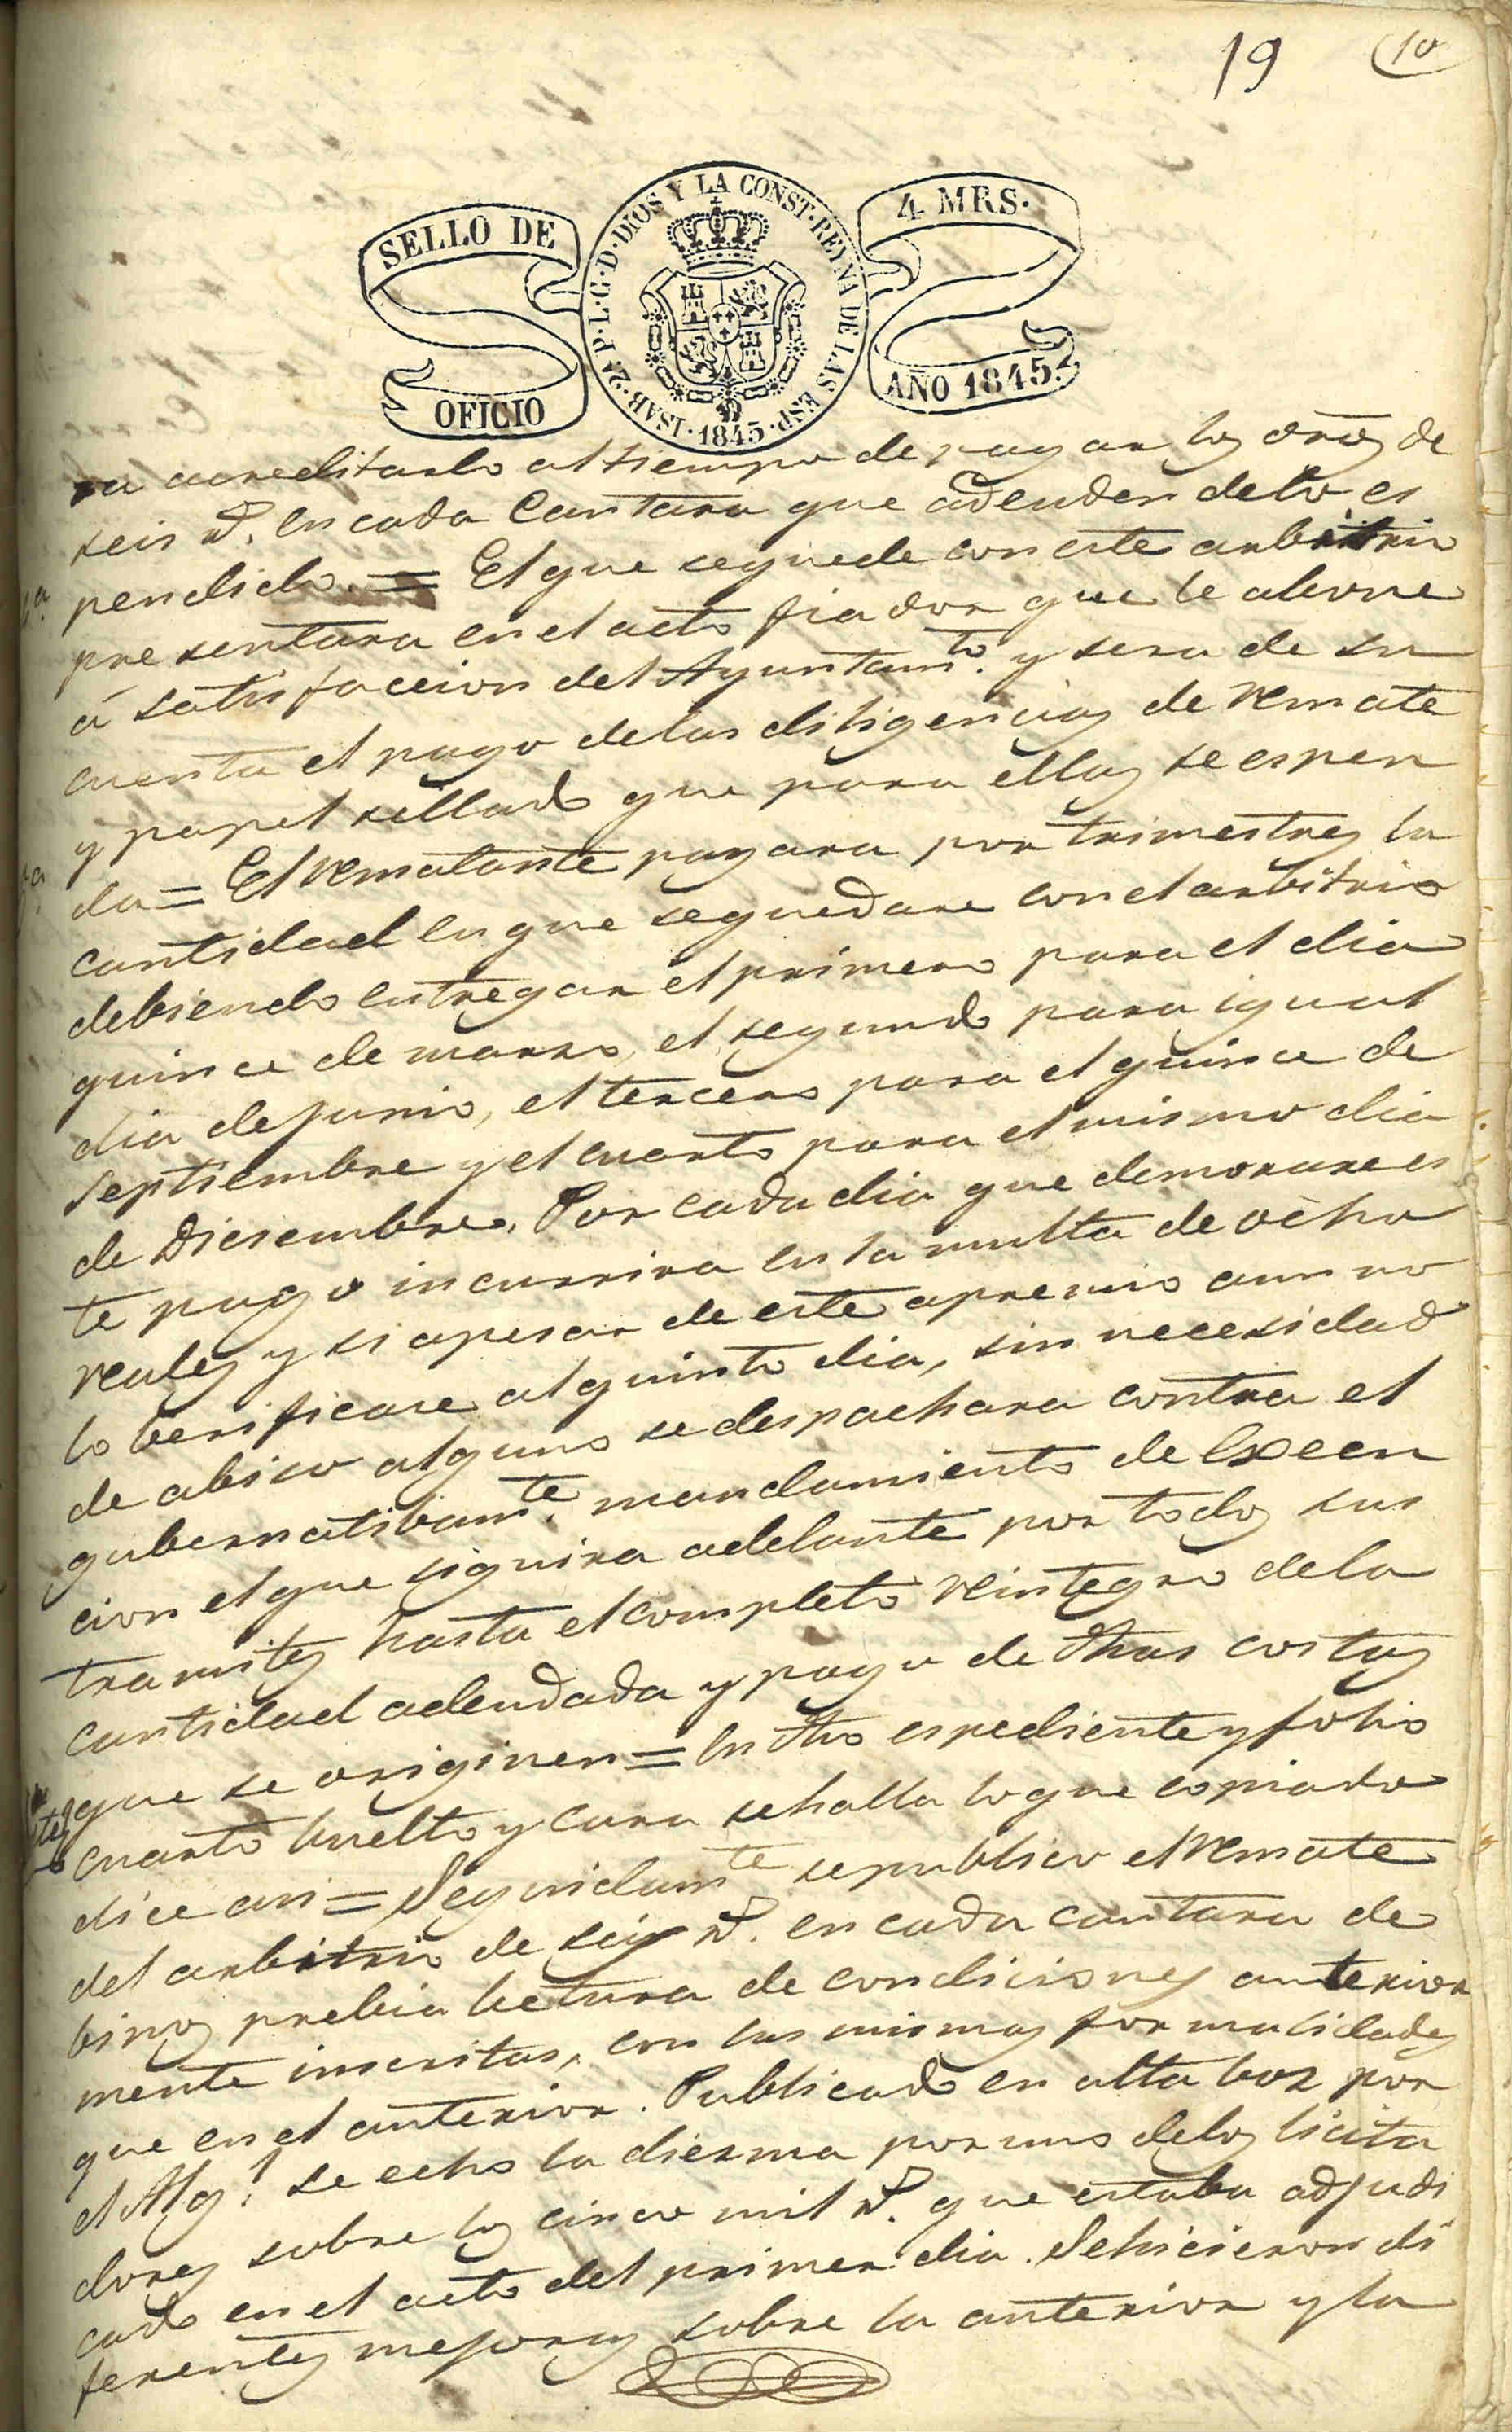 19 10
SELLO DE OFICIO
ISAB. 2ª P. L. G. D. DIOS Y LA CONST. REYNA DE LAS ESP. 1845
4 MRS. AÑO 1845.
ra acreditarlo al tiempo de pagar los dros de
seis rs. en cada Cantara que adeuden delo es
pendido. = El que sequede con este arbitrio
presentara en el acto fiador que le abone
á satisfaccion del Ayuntamto. y sera de su
cuenta el pago delas diligencias de remate
y papel sellado que para ellas se espen
da = El rematante pagara por trimestres la
cantidad en que sequedare con el arbitrio
debiendo entregar el primero para el dia
quince de marzo, el segundo para igual
dia de junio, el tercero para el quince de
Septiembre y el cuarto para el mismo dia
de Diciembre. Por cada dia que demorare es
te pago incurrira en la multa de ocho
reales y si apesar de este apremio aun no
lo berificare al quinto dia, sin necesidad
de abiso alguno se despachara contra el
gubernatibamte. mandamiento de Execu
cion el que siguira adelante por todos sus
tramites hasta el completo reintegro dela
cantidad adeudada y pago de dhas costas
que se originen = En dho espediente y folio
cuarto buelto y cara sehalla loque copiado
dice asi = Seguidamte se publico el remate
del arbitrio de seis rs. en cada cantara de
bino, prebia lectura de condiciones anterior
mente inscritas, con las mismas formalidades
que en el anterior. Publicado en alta boz por
el Algl. se echo la diezma por uno delos licita
dores sobre los cinco mil rs. que estaba adjudi
cado en el acto del primer dia. Sehicieron di
ferentes mejoras sobre la anterior y la